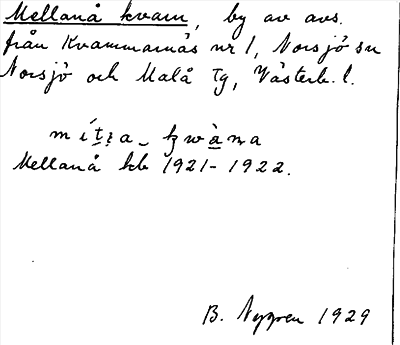 Mellanå kvarn, by av avs.
från Kvarnmarnäs nr 1, Norsjö sn
Norsjö och Malå tg, Västerb. l.
Mellanå kb 1921-1922.
B. Nygren 1929